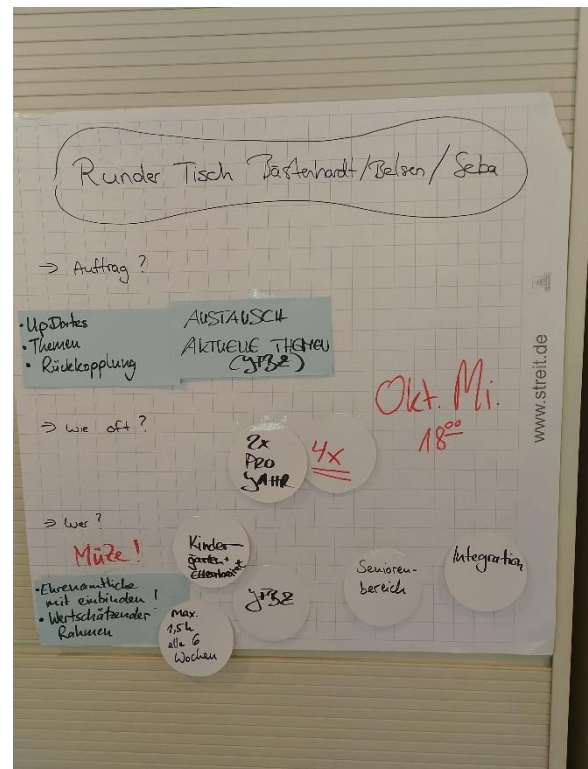 Runder Tisch Bästenhardt/Belsen/Seba
⇒ Auftrag?
• UpDates
• Themen
• Rückkopplung
AUSTAUSCH
AKTUELLE THEMEN
(JFBZ)
Okt. Mi.
18⁰⁰
www.streit.de
⇒ Wie oft?
2x
PRO
JAHR
4x
⇒ Wer?
MüZe!
• Ehrenamtliche
mit einbinden!
• Wertschätzender
Rahmen
Kinder-
garten +
max.
1,5h
alle 6
Wochen
JFBZ
Senioren-
bereich
Integration